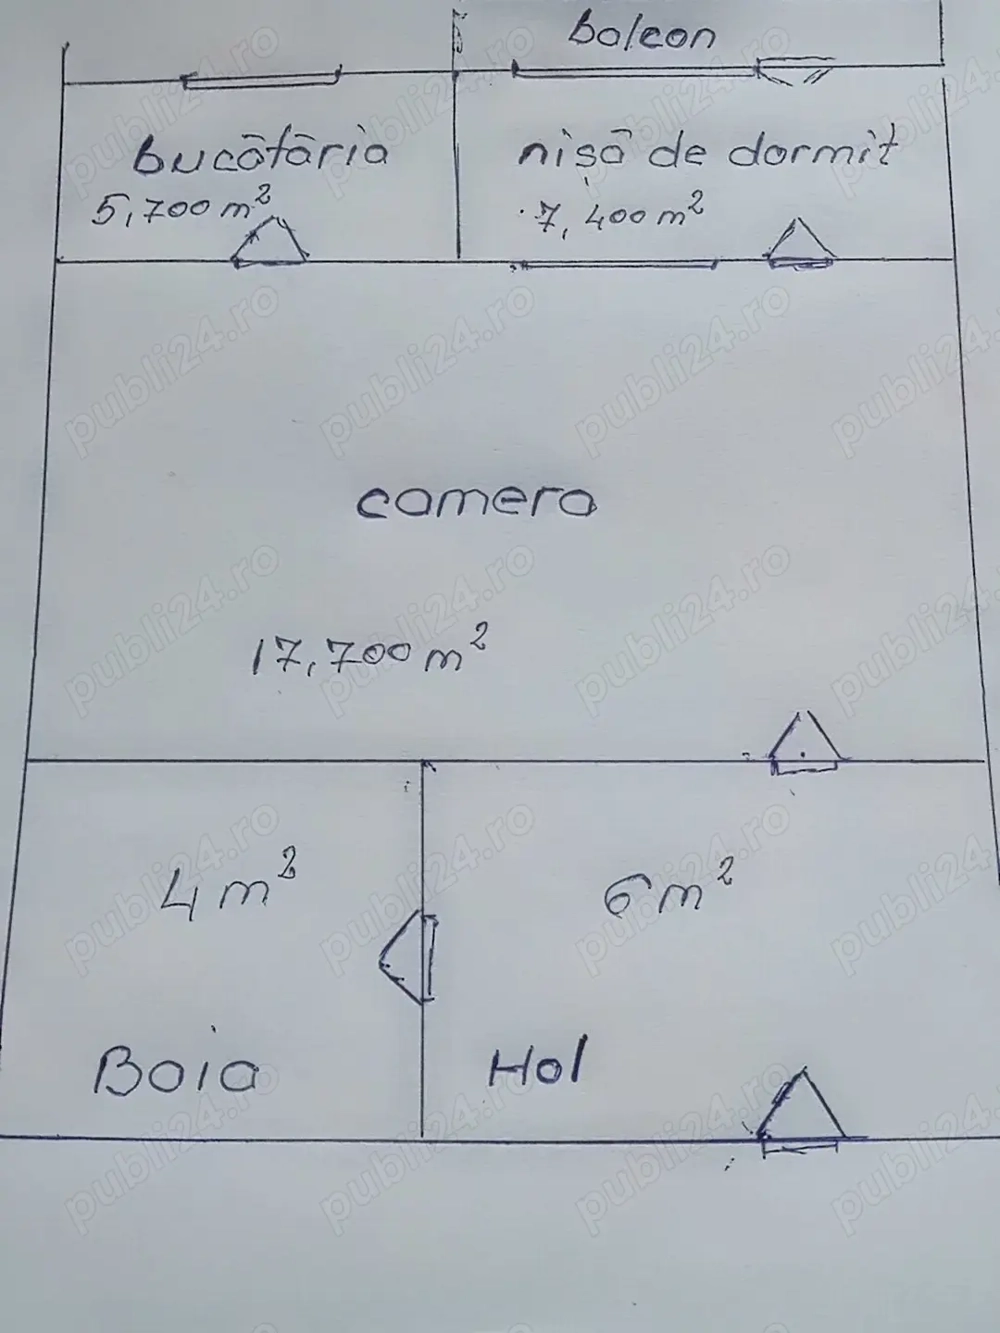 balcon
bucătăria
5,700 m²
nișă de dormit
7,400 m²
camera
17,700 m²
4 m²
Baia
6 m²
Hol
publi24.ro